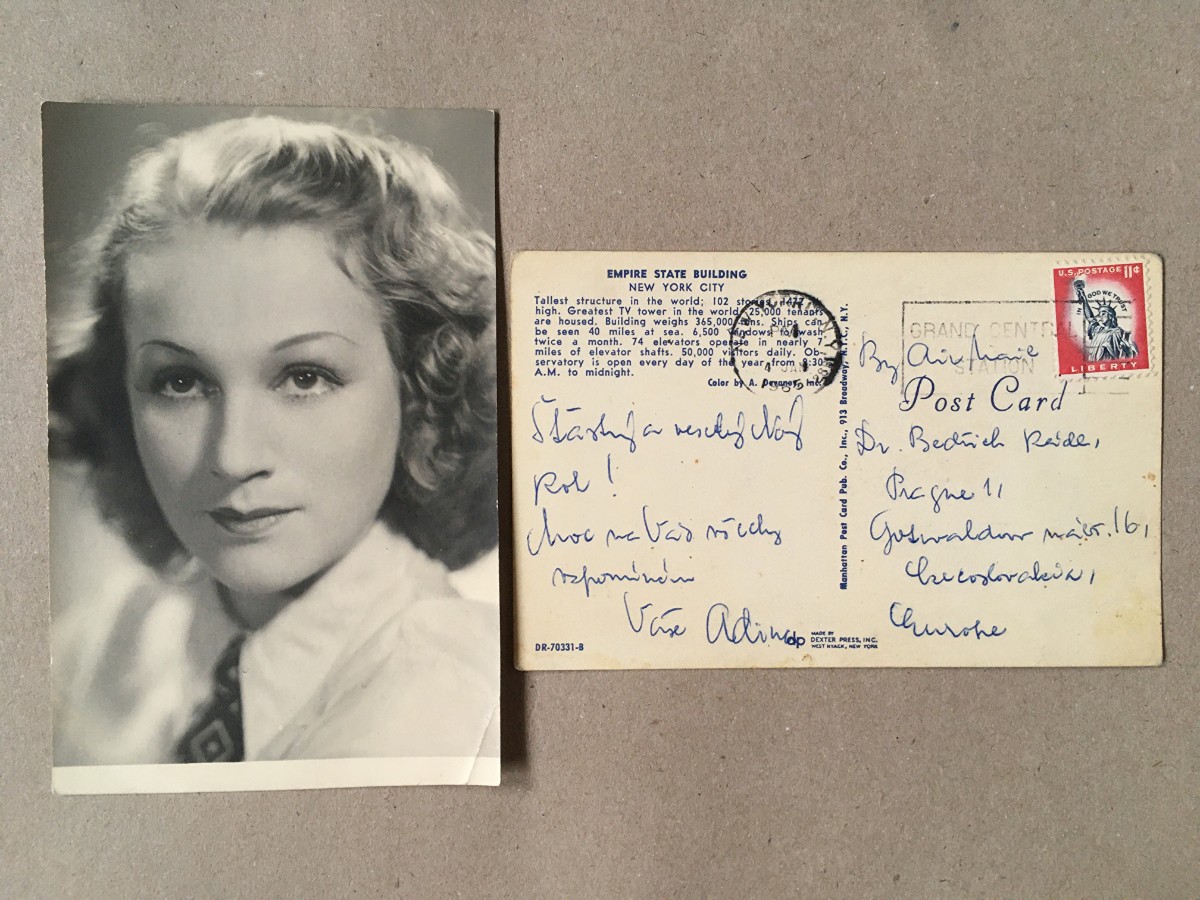 EMPIRE STATE BUILDING
NEW YORK CITY
Tallest structure in the world; 102 stories, 1472 ft.
high. Greatest TV tower in the world. 25,000 tenants
are housed. Building weighs 365,000 tons. Ships can
be seen 40 miles at sea. 6,500 windows to wash
twice a month. 74 elevators operate in nearly 7
miles of elevator shafts. 50,000 visitors daily. Ob-
servatory is open every day of the year from 9:30
A.M. to midnight.
Color by A. Devaney, Inc.
Šťastný a veselý Nový
Rok!
Moc na Vás všechny
vzpomínám
Vaše Adina
DR-70331-B
dp
MADE BY
DEXTER PRESS, INC.
WEST NYACK, NEW YORK
Manhattan Post Card Pub. Co., Inc., 913 Broadway, N.Y.C., N.Y.
U.S. POSTAGE 11¢
IN GOD WE TRUST
LIBERTY
GRAND CENTRAL
STATION
By Airplane
Post Card
Dr. Bedřich
Prague 1,
Gottwaldovo nábř. 16,
Czecoslovakia,
Europe